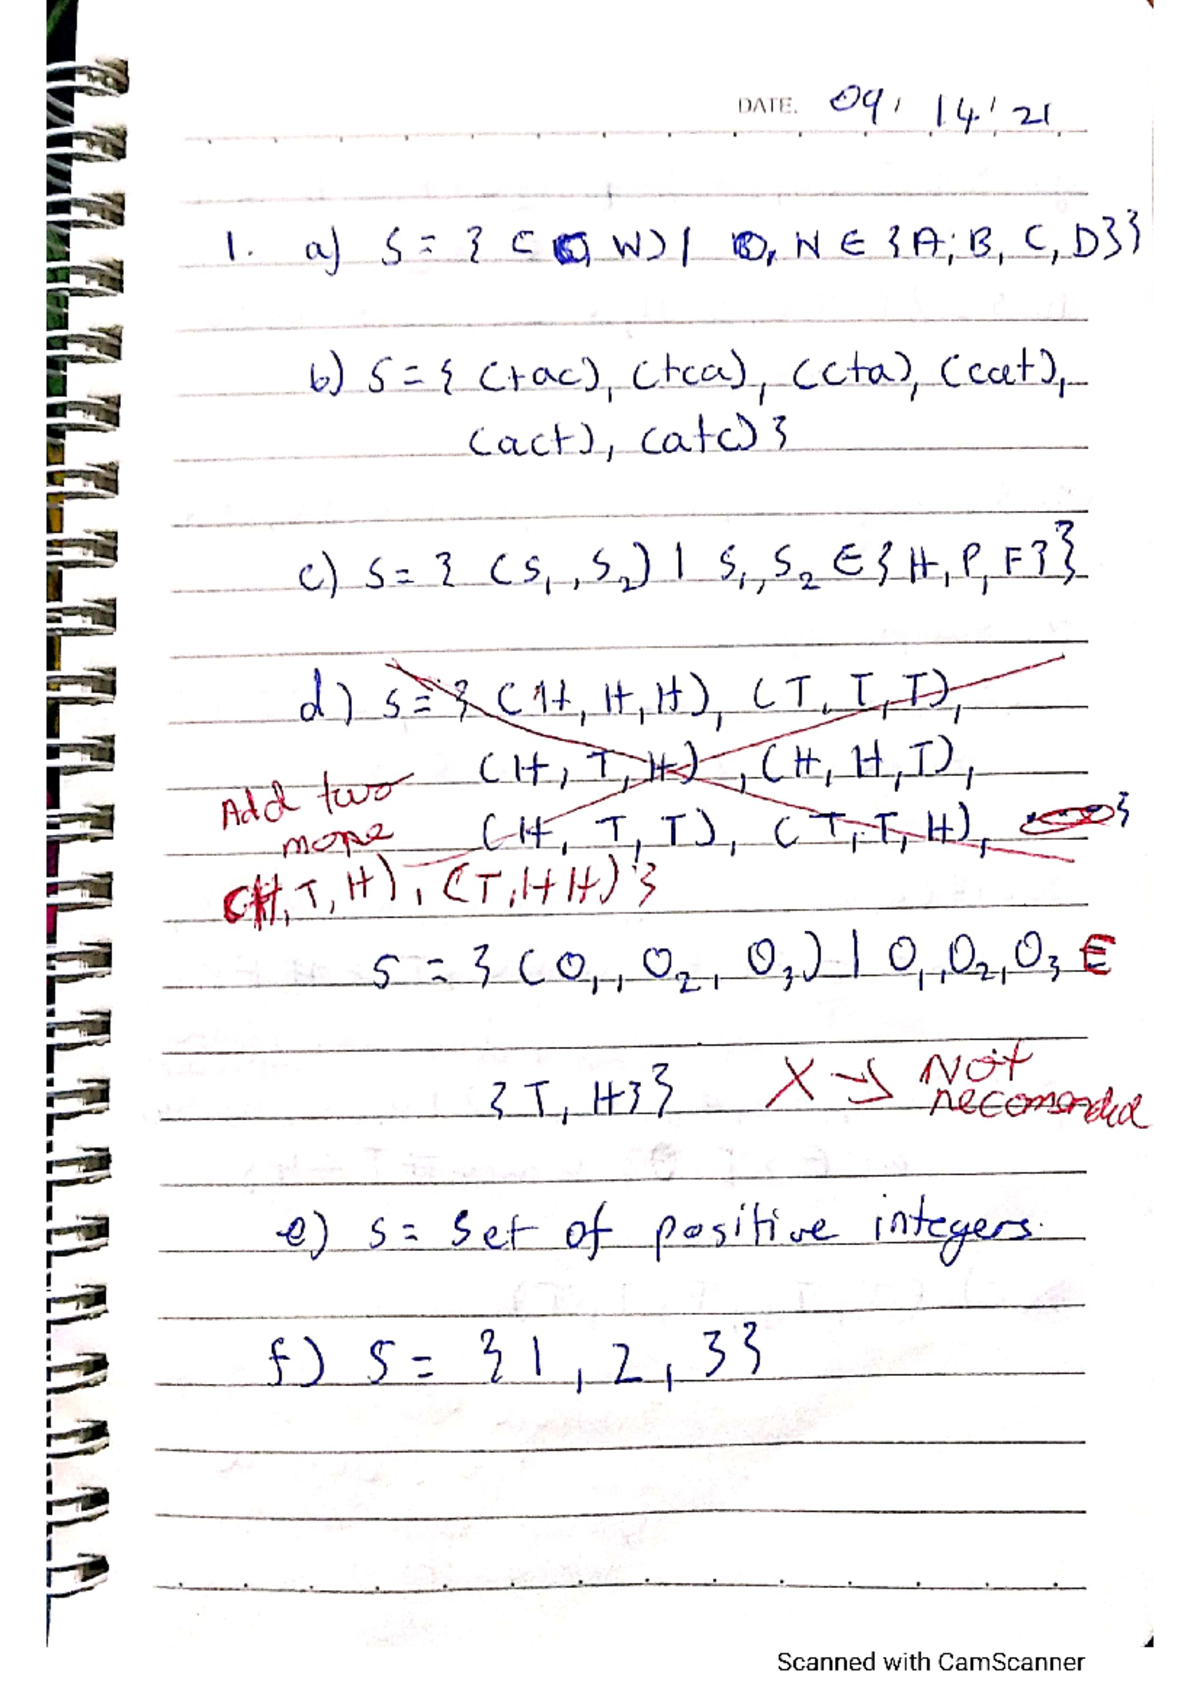 DATE. 09, 14, 21
1. a) S = { (O, W) | O, W ∈ {A, B, C, D}}
b) S = { (tac), (tca), (cta), (cat),
(act), (atc) }
c) S = { (S₁, S₂) | S₁, S₂ ∈ {H, P, F}}
d) S = { (H, H, H), (T, T, T),
(H, T, H), (H, H, T),
Add two
more
(H, T, T), (T, T, H), }
(H, T, H), (T, H H) }
S = { (O₁, O₂, O₃) | O₁, O₂, O₃ ∈
{T, H}} X → Not
recomended
e) S = Set of positive integers.
f) S = {1, 2, 3}
Scanned with CamScanner